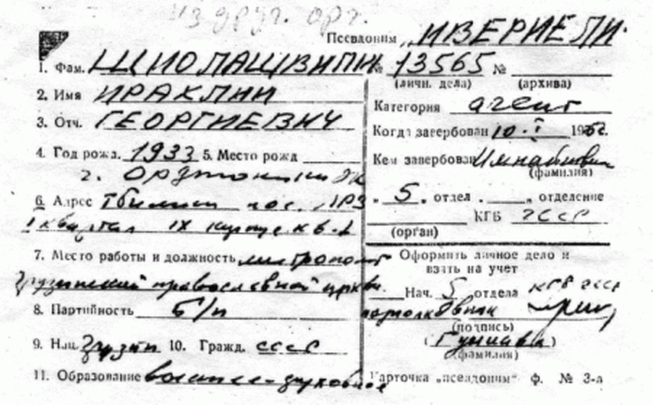 из друг. орг.
Псевдоним „ИВЕРИЕЛИ"
1. Фам. ШИОЛАШВИЛИ
2. Имя ИРАКЛИЙ
3. Отч. ГЕОРГИЕВИЧ
4. Год рожд. 1933 5. Место рожд
г. Орджоникидзе
6. Адрес Тбилиси пос.
I квартал IX корпус кв.
7. Место работы и должность митрополит
Грузинской православной церкви
8. Партийность б/п
9. Нац. Грузин 10. Гражд. СССР
11. Образование высшее-духовное
№ 13565 №
(личн. дела) (архива)
Категория агент
Когда завербован 10. I 196
Кем завербован
(фамилия)
5. отдел отделение
КГБ ГССР
(орган)
Оформить личное дело и
взять на учет
Нач. 5 отдела КГБ ГССР
подполковник
(подпись)
(фамилия)
Карточка „псевдоним" ф. № 3-а